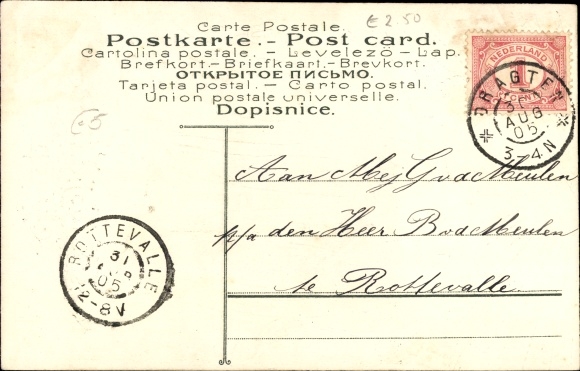 Carte Postale.
Postkarte.- Post card.
Cartolina postale. - Levelezö - Lap.
Brefkort.-Briefkaart.-Brevkort.
ОТКРЫТОЕ ПИСЬМО.
Tarjeta postal. - Carto postal.
Union postale universelle.
Dopisnice.
€ 2.50
€5
NEDERLAND
1
DRAGTEN
31
AUG
05
3-4N
Aan Mej G v d Meulen
p/a den Heer B v d Meulen
te Rottevalle.
ROTTEVALLE
31
AUG
05
12-8V